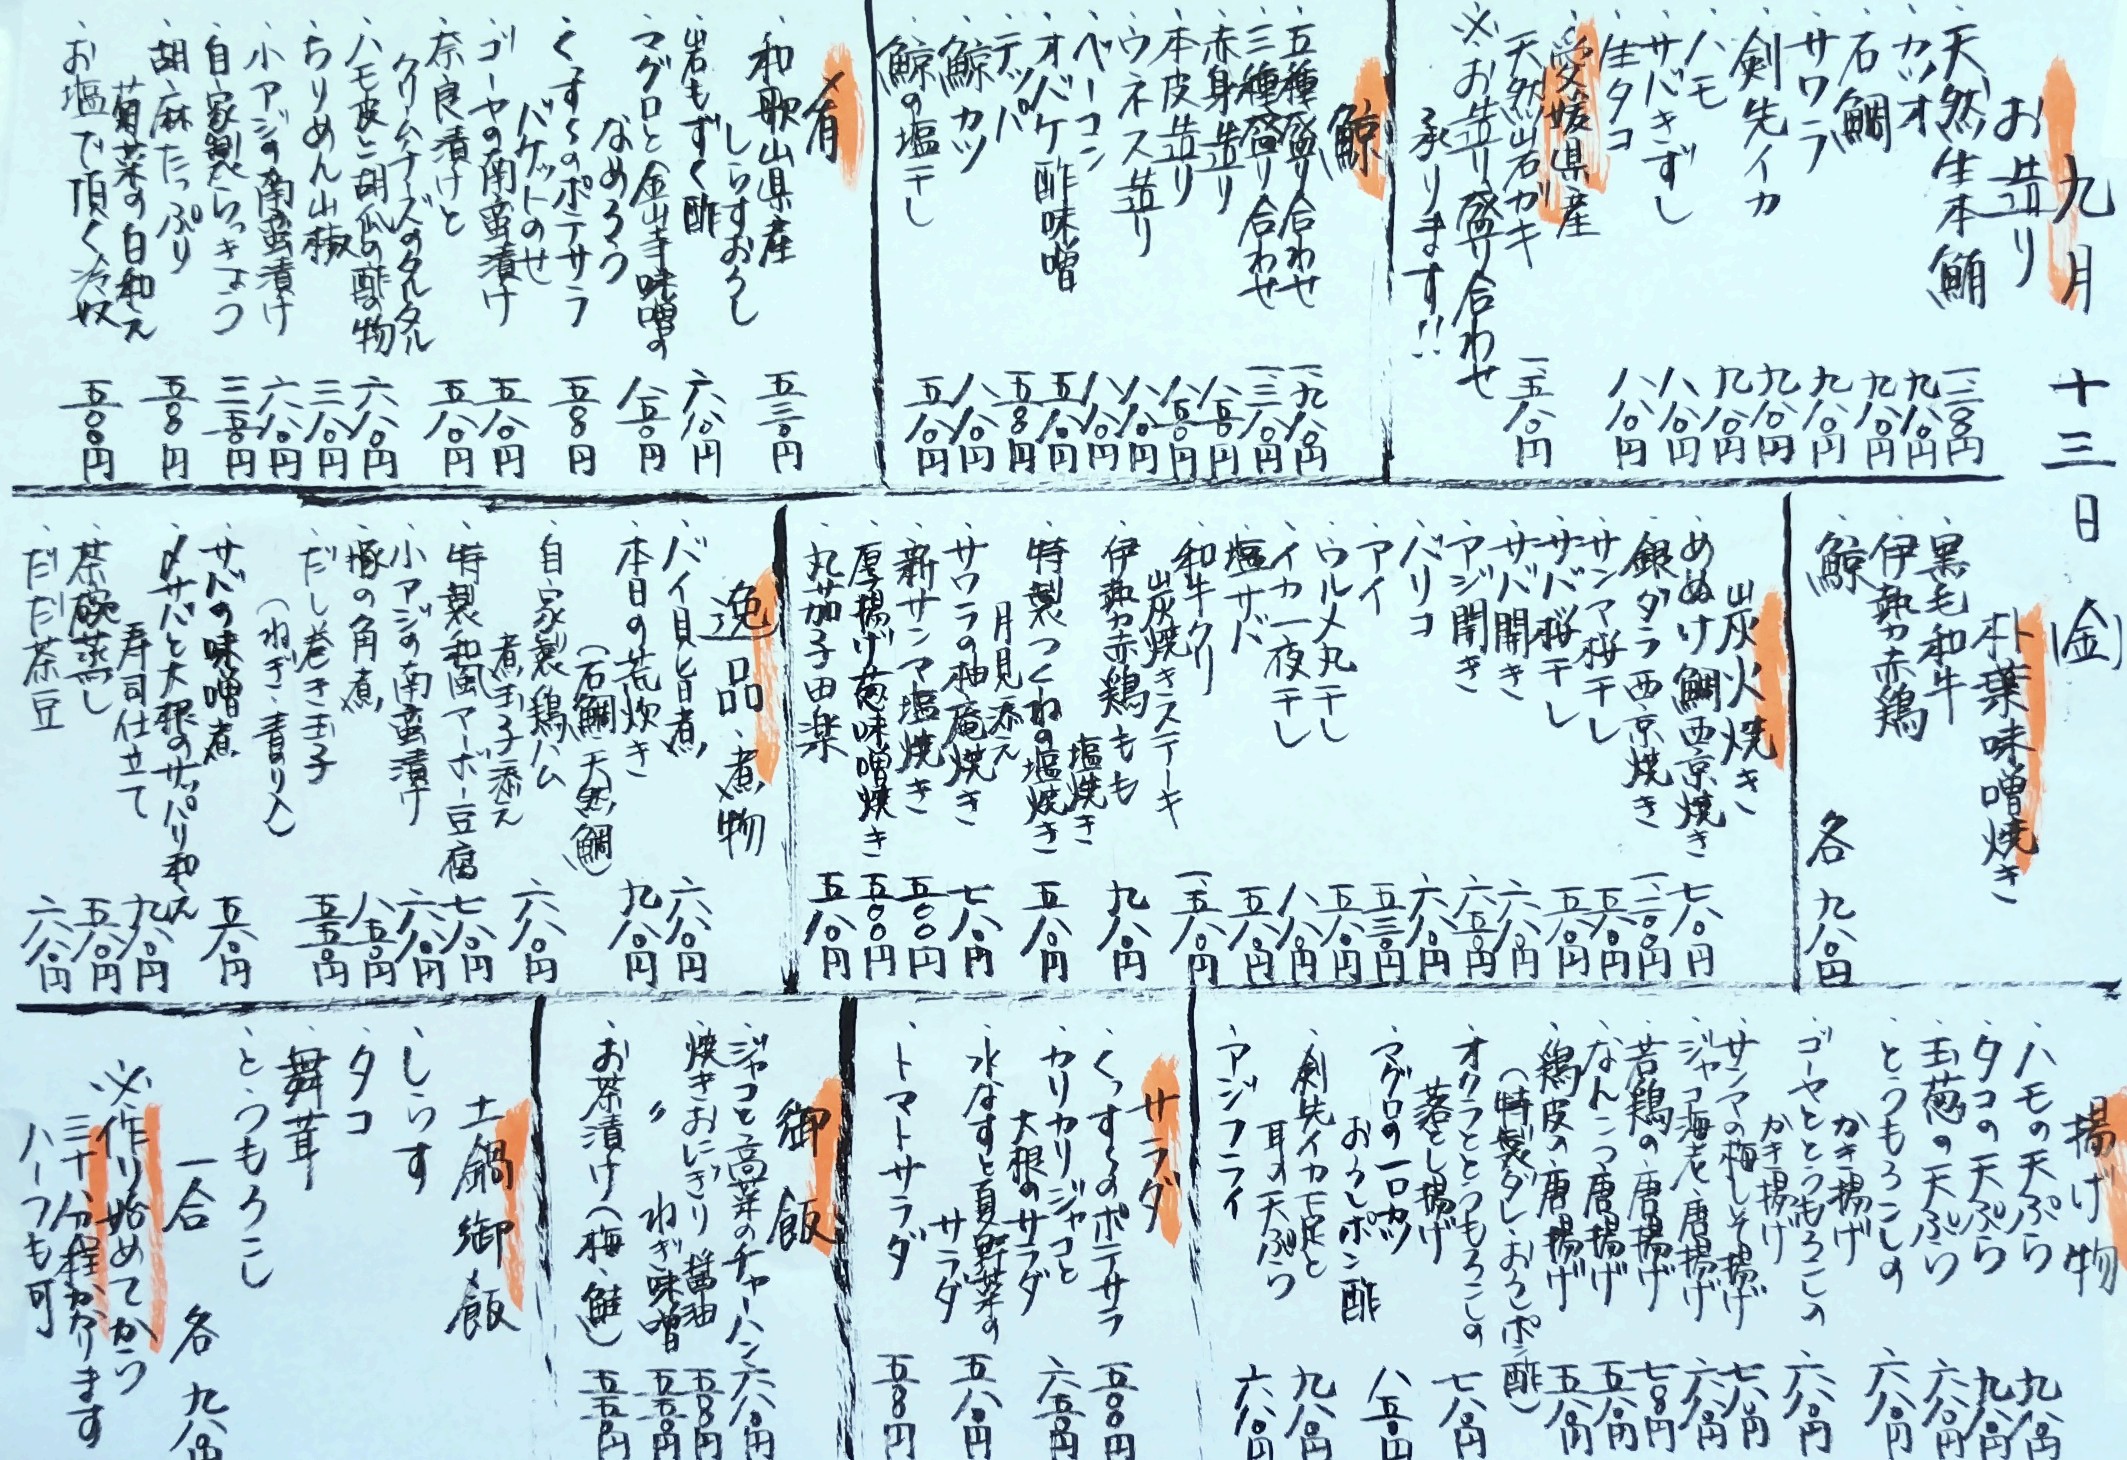 九月 十三日(金)
お造り
・天然生本鮪
・カツオ 九八〇円
・石鯛 九八〇円
・サワラ 九八〇円
・剣先イカ 九八〇円
・ハモ 九八〇円
・サバきずし 八八〇円
・生タコ 八八〇円
・愛媛県産
天然岩ガキ 一、五八〇円
※お造り盛り合わせ
承ります!!
鯨
・五種盛り合わせ 一、九八〇円
・三種盛り合わせ 一、三八〇円
・赤身造り 八五〇円
・本皮造り 八五〇円
・ウネス造り 八八〇円
・ベーコン 八八〇円
・オバケ酢味噌 五八〇円
・テッパ 五五〇円
・鯨カツ 八八〇円
・鯨の塩干し 五八〇円
肴
・和歌山県産
しらすおろし 五三〇円
・岩もずく酢 六八〇円
・マグロと金山寺味噌の
なめろう 八五〇円
・くっすぅのポテサラ
バケットのせ 五五〇円
・ゴーヤの南蛮漬け 五八〇円
・奈良漬けと
クリームチーズのタルタル 五八〇円
・ハモ皮と胡瓜の酢の物 六八〇円
・ちりめん山椒 三八〇円
・小アジの南蛮漬け 六八〇円
・自家製らっきょう 三五〇円
・胡麻たっぷり
菊菜の白和え 五五〇円
・お塩で頂く冷奴 五五〇円
朴葉味噌焼き
・黒毛和牛
・伊勢赤鶏
・鯨
各 九八〇円
炭火焼き
・めぬけ鯛西京焼き 七八〇円
・銀ダラ西京焼き
・サンマ桜干し 五八〇円
・サバ桜干し 五五〇円
・サバ開き 六八〇円
・アジ開き 六五〇円
・バリコ 六八〇円
・アイ 五三〇円
・ウルメ丸干し 五八〇円
・イカ一夜干し 八八〇円
・塩サバ 五八〇円
・和牛クリ
炭焼きステーキ 一、五八〇円
・伊勢赤鶏もも
塩焼き 九八〇円
・特製つくねの塩焼き
月見添え 五八〇円
・サワラの柚庵焼き 七八〇円
・新サンマ塩焼き
・厚揚げ葱味噌焼き
・丸茄子田楽 五八〇円
逸品・煮物
・バイ貝旨煮 六八〇円
・本日の荒炊き
(石鯛、天然鯛) 九八〇円
・自家製鶏ハム
煮玉子添え 六八〇円
・特製和風マーボー豆腐 七八〇円
・小アジの南蛮漬け 六八〇円
・豚の角煮 八五〇円
・だし巻き玉子
(ねぎ・青のり入) 五五〇円
・サバの味噌煮 五八〇円
・〆サバと大根のサッパリ和え
寿司仕立て 九八〇円
・茶碗蒸し 五八〇円
・だだ茶豆 六八〇円
揚げ物
・ハモの天ぷら 九八〇円
・タコの天ぷら 九八〇円
・玉葱の天ぷら 六八〇円
・とうもろこしの
かき揚げ 六八〇円
・ゴーヤととうもろこしの
かき揚げ 六八〇円
・サンマの梅しそ揚げ 七八〇円
・ジャコ海老唐揚げ 六八〇円
・若鶏の唐揚げ
・なんこつ唐揚げ 五五〇円
・鶏皮の唐揚げ 五八〇円
(特製ダレ・おろしポン酢)
・オクラととうもろこしの
落とし揚げ 七八〇円
・マグロの一口カツ
おろしポン酢 八五〇円
・剣先イカ下足と
耳の天ぷら 九八〇円
・アジフライ 六八〇円
サラダ
・くっすぅのポテサラ
・カリカリジャコと
大根のサラダ 六五〇円
・水なすと夏野菜の
サラダ 五八〇円
・トマトサラダ 五五〇円
御飯
・ジャコと高菜のチャーハン 六八〇円
・焼きおにぎり 醤油 五五〇円
〃 ねぎ味噌 五五〇円
・お茶漬け(梅、鮭) 五五〇円
土鍋御飯
・しらす
・タコ
・舞茸
・とうもろこし
一合 各 九八〇円
※作り始めてから
三十分程かかります
ハーフも可